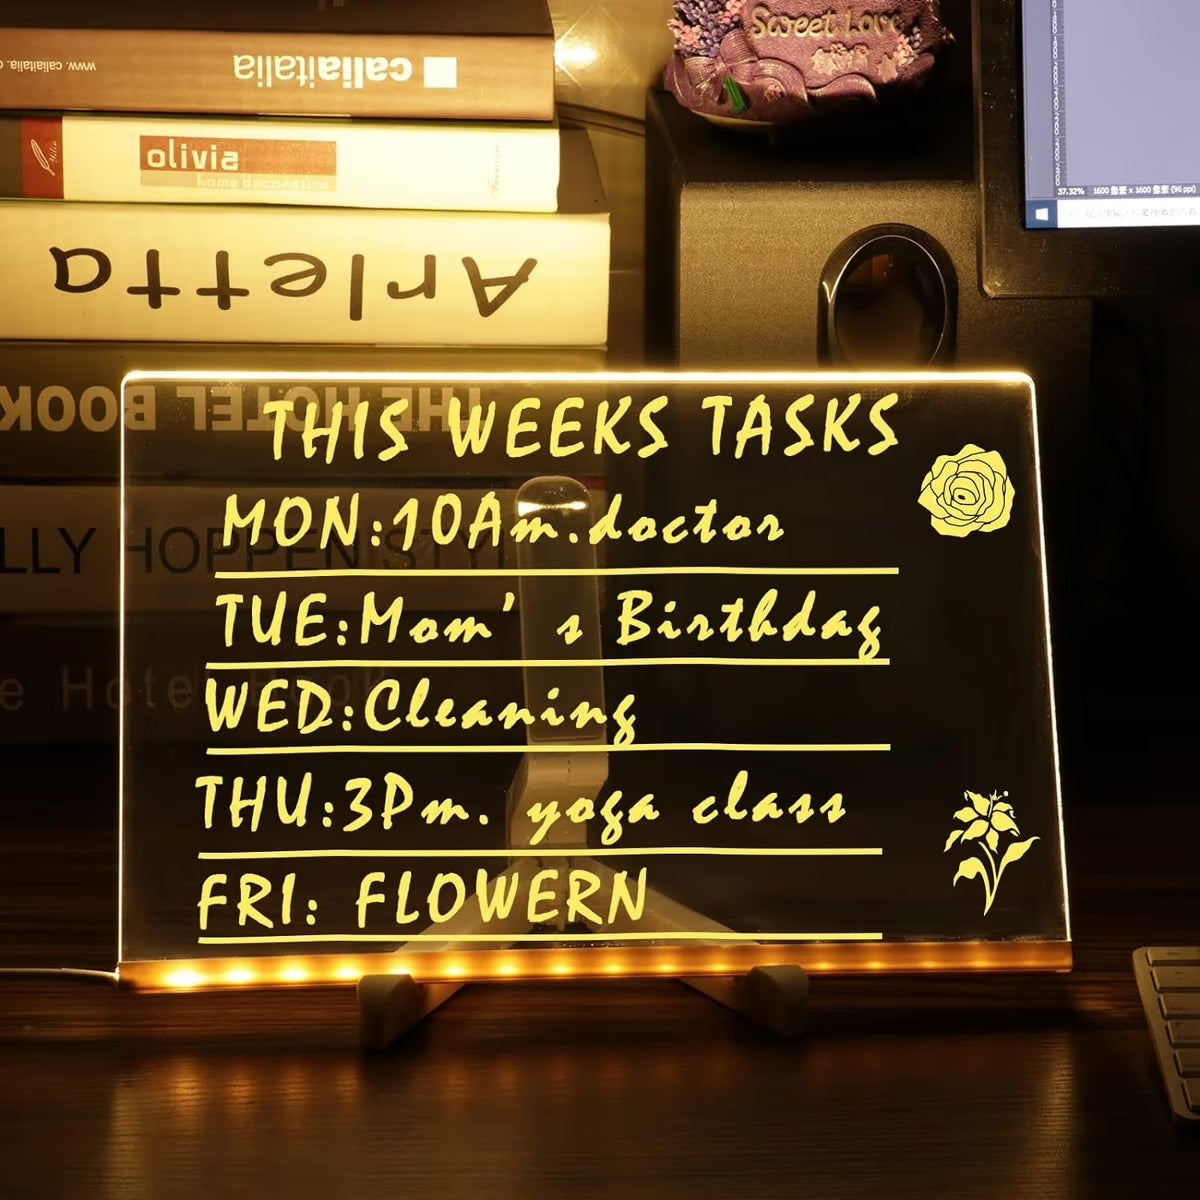 www.caliaitalia.c
caliaitalia
olivia
home decoration
Arletta
THE HOTEL BOOK
LLY HOPPEN STYL
e Hotel Book
Sweet Love
37.32%
1600 像素 x 1600 像素 (96 ppi)
THIS WEEKS TASKS
MON:10Am.doctor
TUE:Mom’s Birthday
WED:Cleaning
THU:3Pm. yoga class
FRI: FLOWERN